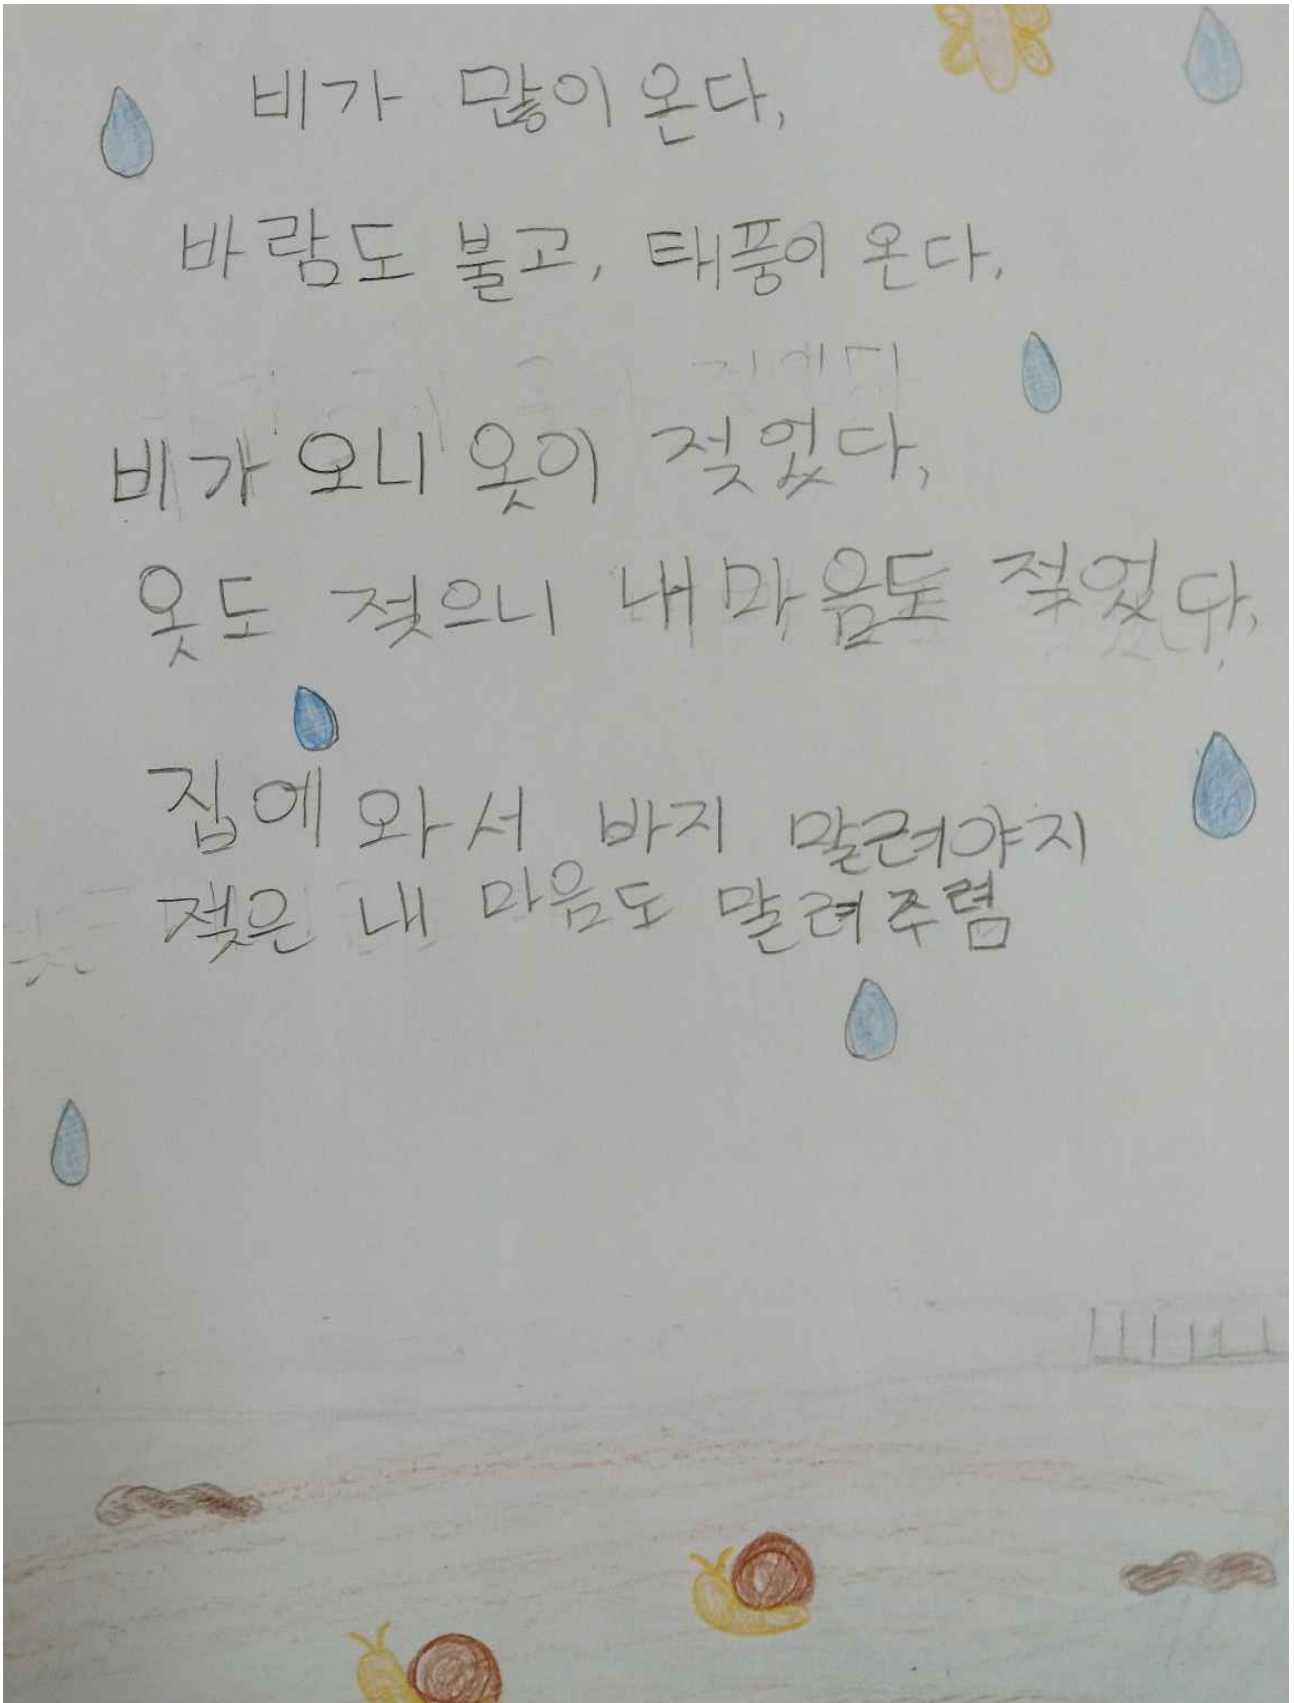 비가 많이 온다,
바람도 불고, 태풍이 온다.
비가 오니 옷이 젖었다,
옷도 젖으니 내 마음도 젖었다,
집에 와서 바지 말려야지
젖은 내 마음도 말려주렴